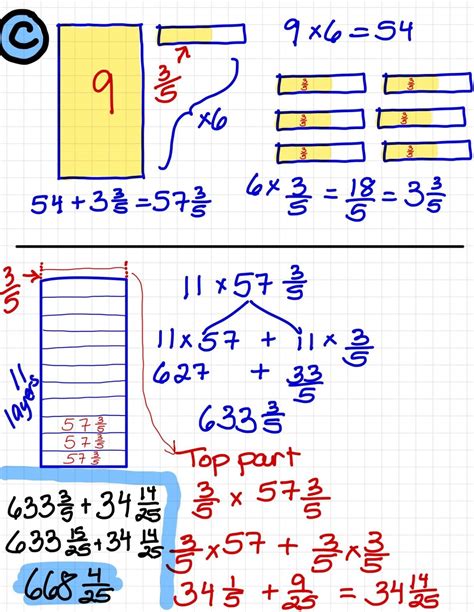 C
9
3/5
×6
9 × 6 = 54
3/5 3/5
3/5 3/5
3/5 3/5
54 + 3 3/5 = 57 3/5
6 × 3/5 = 18/5 = 3 3/5
3/5
11 layers
57 3/5
57 3/5
57 3/5
11 × 57 3/5
11 × 57 + 11 × 3/5
627 + 33/5
633 3/5
Top part
3/5 × 57 3/5
3/5 × 57 + 3/5 × 3/5
34 1/5 + 9/25 = 34 14/25
633 3/5 + 34 14/25
633 15/25 + 34 14/25
668 4/25